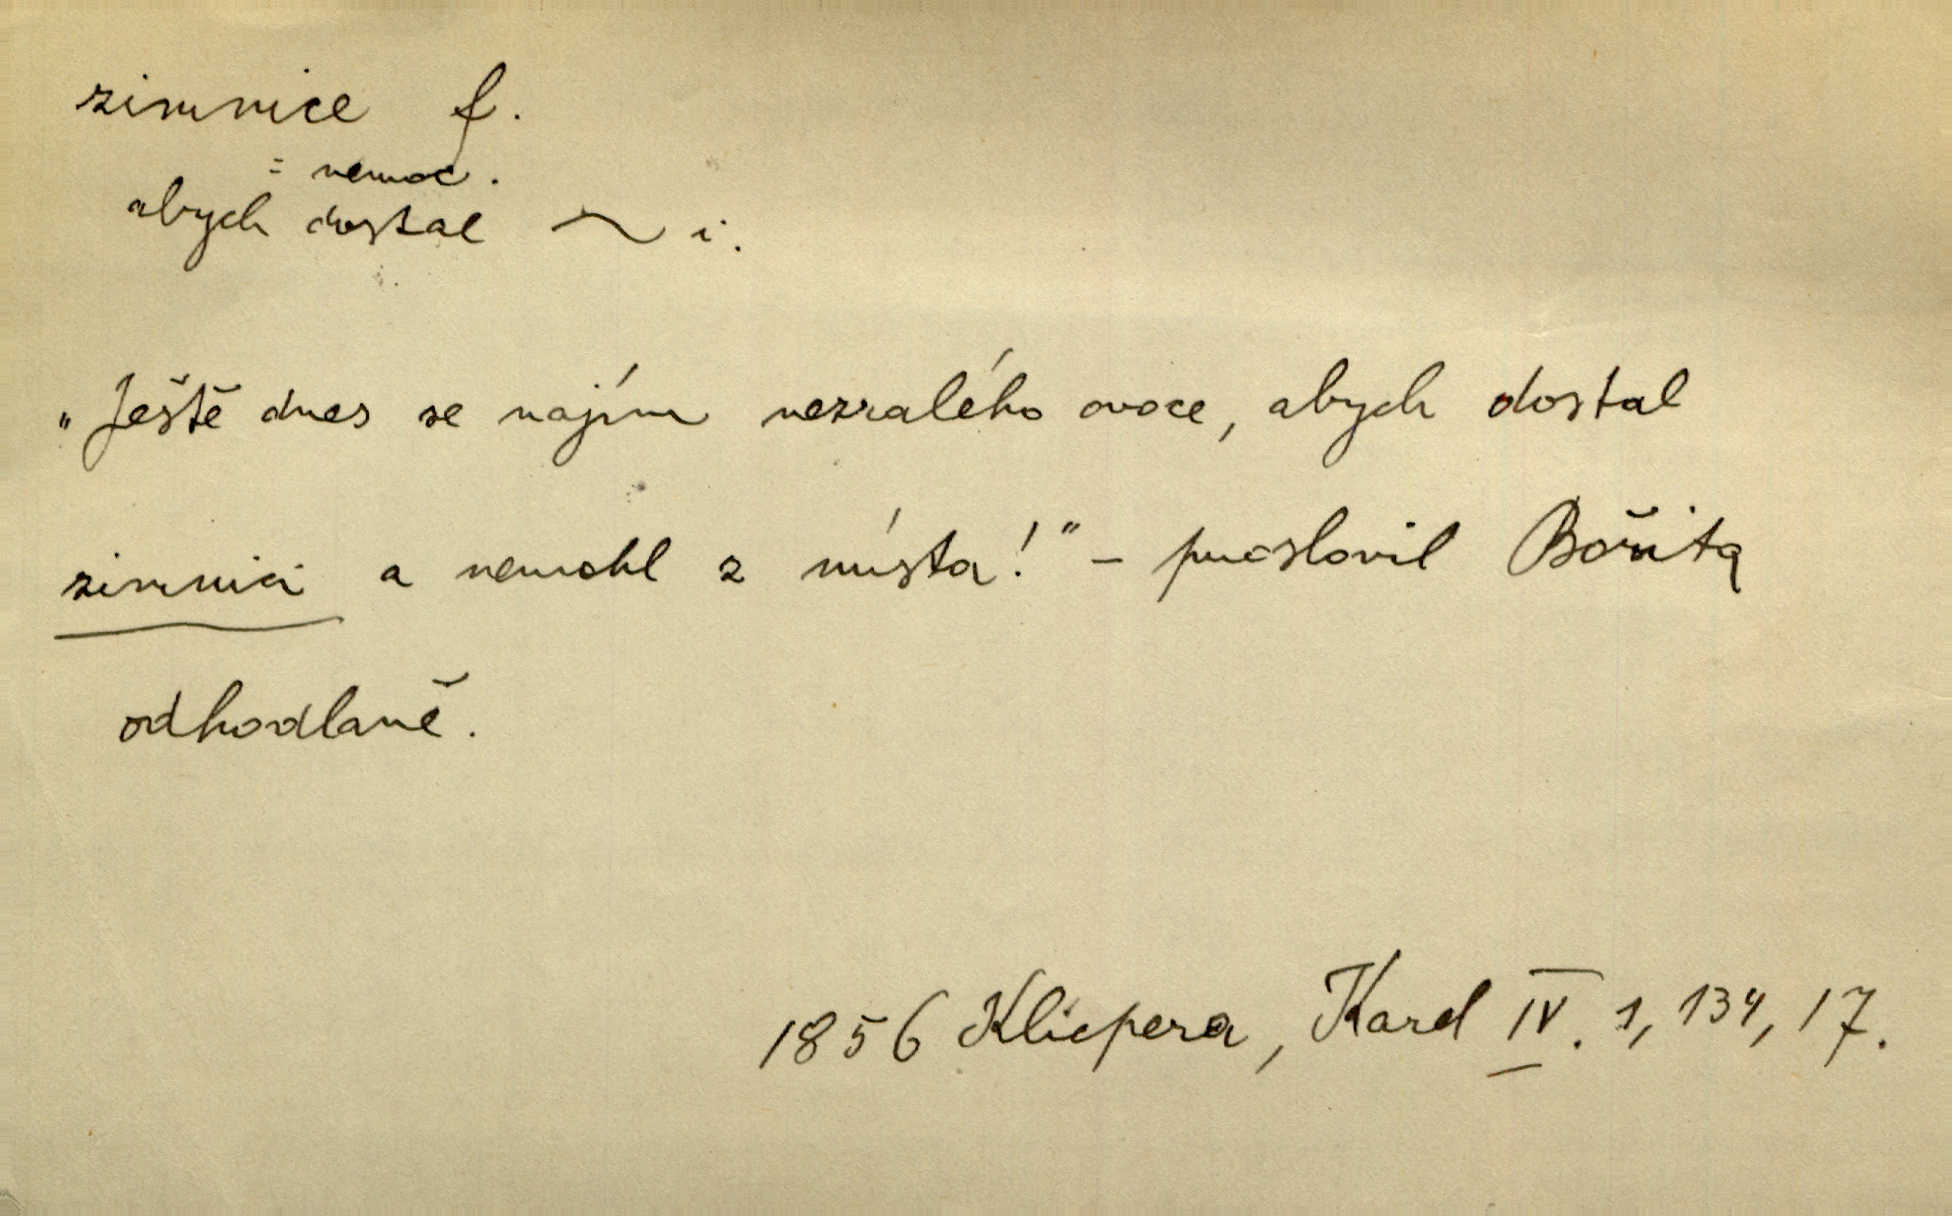 zimnice f.
= nemoc.
abych dostal ~ i.
„Ještě dnes se najím nezralého ovoce, abych dostal
zimnici a nemohl z místa!" – proslovil Bořita
odhodlaně.
1856 Klicpera, Karel IV. 1, 134, 17.